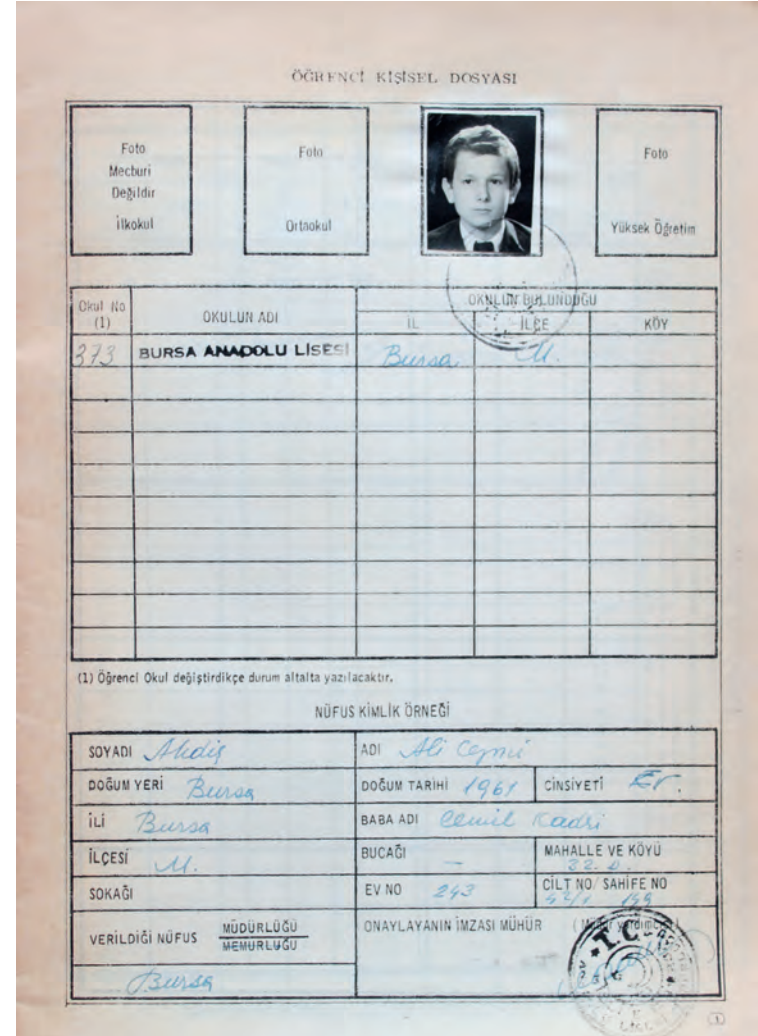 ÖĞRENCİ KİŞİSEL DOSYASI
Foto
Mecburi
Değildir
İlkokul
Foto
Ortaokul
Foto
Yüksek Öğretim
Okul No
(1)
OKULUN ADI
OKULUN BULUNDUĞU
İL
İLÇE
KÖY
373 BURSA ANADOLU LİSESİ Bursa M.
(1) Öğrenci Okul değiştirdikçe durum altalta yazılacaktır.
NÜFUS KİMLİK ÖRNEĞİ
SOYADI Akdiş ADI Ali Cemil
DOĞUM YERİ Bursa DOĞUM TARİHİ 1961 CİNSİYETİ Er.
İLİ Bursa BABA ADI Cemil Kadri
İLÇESİ M. BUCAĞI — MAHALLE VE KÖYÜ
SOKAĞI EV NO 243 CİLT NO/ SAHİFE NO
VERİLDİĞİ NÜFUS MÜDÜRLÜĞÜ
MEMURLUĞU
ONAYLAYANIN İMZASI MÜHÜR
Bursa
T.C.
(1)